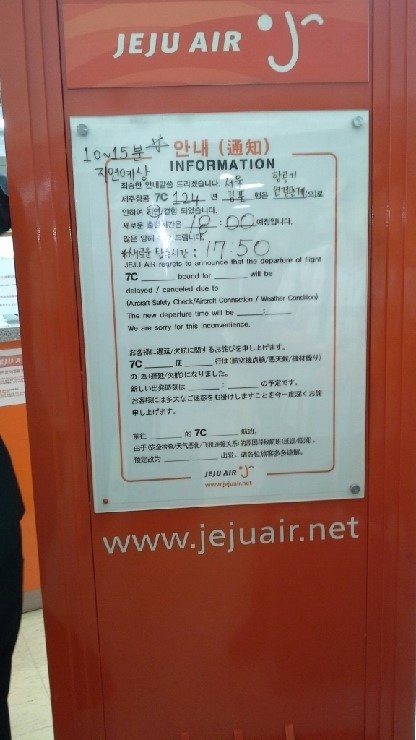 JEJU AIR
10~15분
지연예상
안내 (通知)
INFORMATION
죄송한 안내말씀 드리겠습니다. 서울
제주항공 7C 124 편 김포 행은 항공기 연결관계(으)로
인하여 지연/결항 되었습니다.
새로운 출발시간은 18 : 00 예정입니다.
많은 양해 드립니다.
새로운 탑승시간 : 17:50
JEJU AIR regrets to announce that the departure of flight
7C ______ bound for ______ will be
delayed / canceled due to
(Aircraft Safety Check/Aircraft Connection / Weather Condition)
The new departure time will be ____ : ____.
We are sorry for this inconvenience.
お客様に遅延/欠航に関するお詫びを申し上げます。
7C ______ 便 ______ 行は(航空機点検/悪天候/機材繰り)
の 為(遅延/欠航)になりました。
新しい出発時刻は ____ : ____ の予定です。
お客様には多大なご迷惑をお掛けしますことを今一度深くお詫び
申し上げます。
______ 的 7C ______ 航班,
预定改为 ____ : ____ 出发, 请各位旅客多多谅解。
JEJU AIR
www.jejuair.net
www.jejuair.net